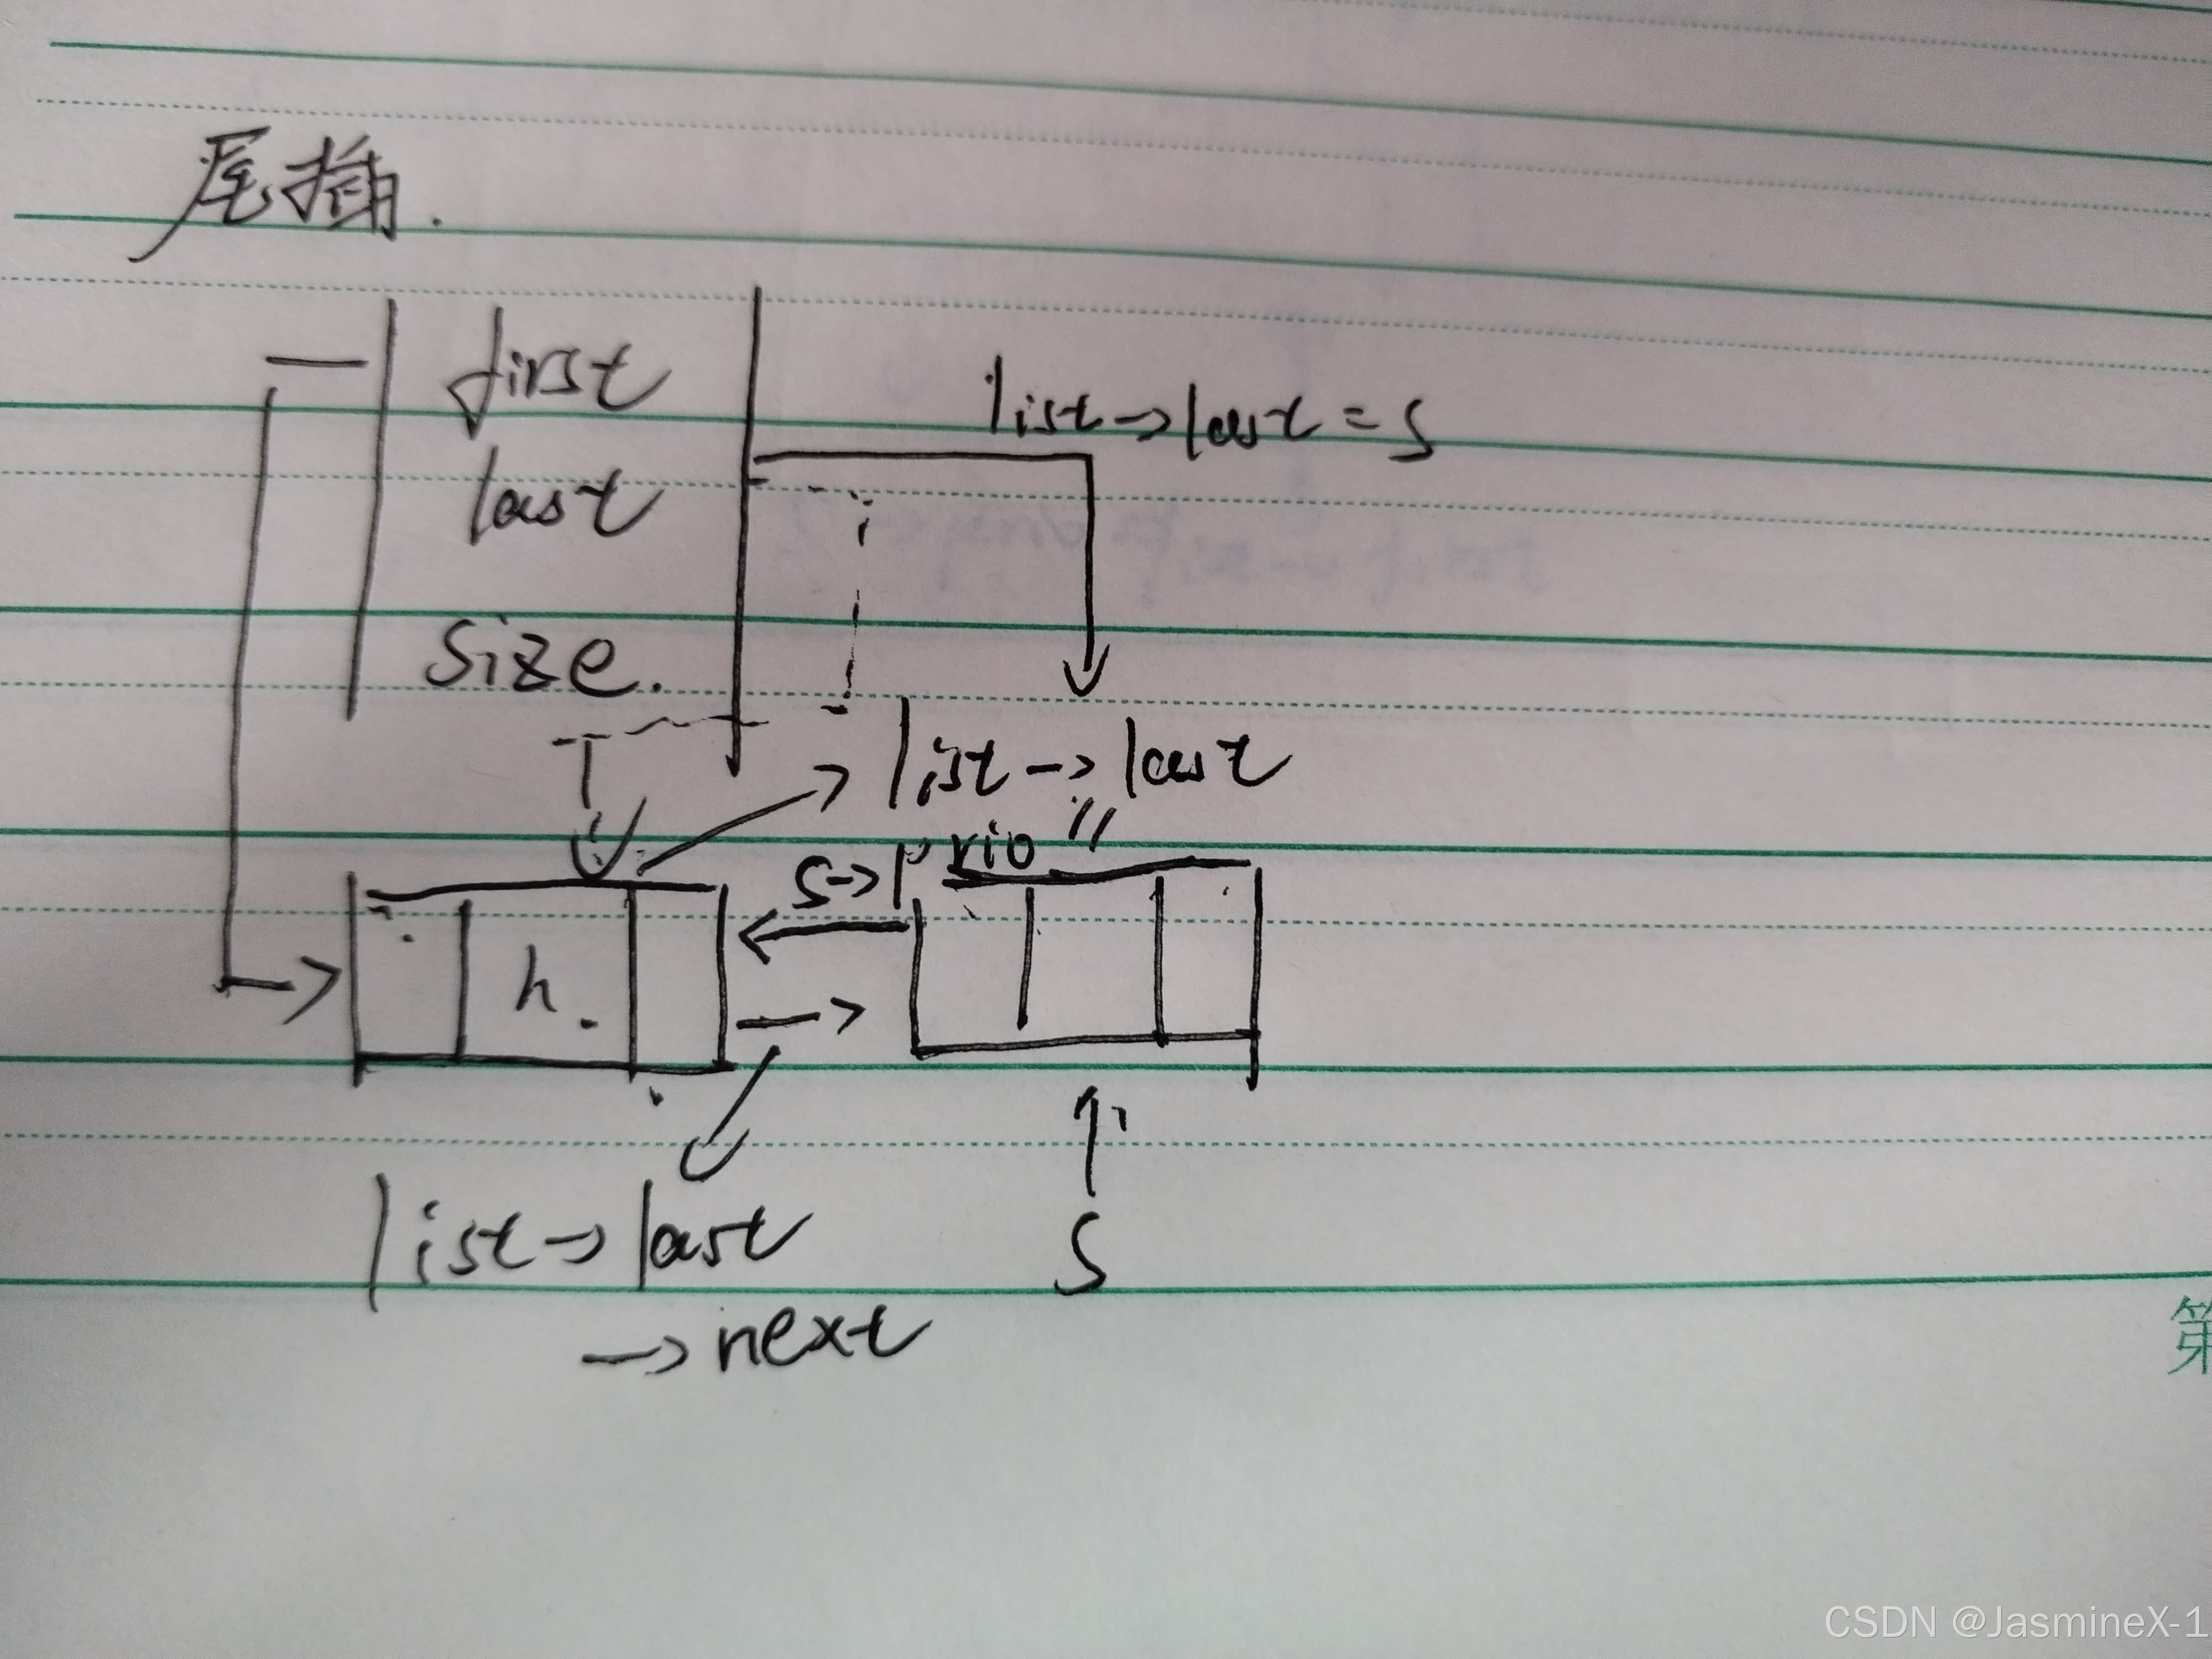 尾插.
first
list->last = s
last
size.
list->last
"
s->prio
h.
list->last
s
->next
第
CSDN @JasmineX-1